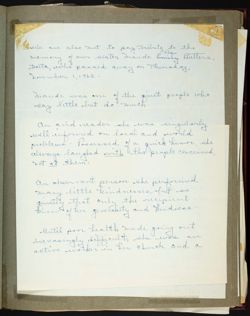 We are also met to pay tribute to the
memory of our sister Maude Emily Withers,
Delta, who passed away on Thursday,
November 1, 1962.
Maude was one of the quiet people who
say little but do much.
An avid reader she was singularly
well informed on local and world
problems. Possessed of a quick humor she
always laughed with the people concerned,
not at them.
An observant person she performed
many little kindnesses, but so
quietly that only the recipient
knew her generosity and kindness.
Until poor health made going out
increasingly difficult, she was an
active worker in the church and a